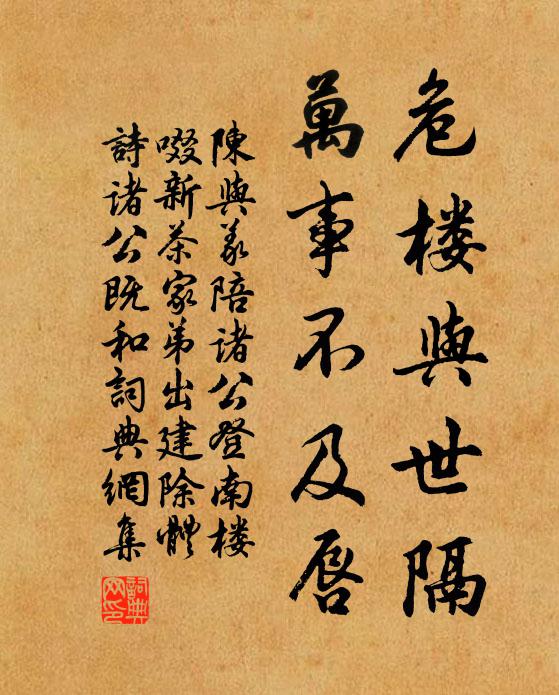 危楼與世隔
萬事不及唇
陳與義陪诸公登南楼
啜新茶家弟出建除體
詩诸公既和詞典網集
詞典网印